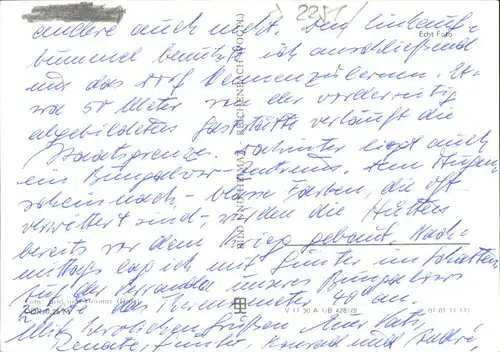 andere auch nicht. Den Einkaufs-
bummel benutzte ich anschließend
um das Dorf kennenzulernen. Et-
wa 50 Meter von der vorderseitig
abgebildeten Gaststätte verläuft die
Staatsgrenze. Dahinter liegt auch
ein Bungalow-Zentrum. Dem Augen-
schein nach - blasse Farben, die oft
verwittert sind -, wurden die Hütten
bereits vor dem Krieg gebaut. Nach-
mittags lag ich mit Günter im Schatten
auf der Veranda unseres Bungalows
das Thermometer 40° an.
Mit herzlichen Grüßen Eure Kati,
Renate, Günter, Konrad und André,
2251
Echt Foto
BILD UND HEIMAT REICHENBACH (VOGTL)
V 11 50 A 1/B 428/78
01 01 11 111